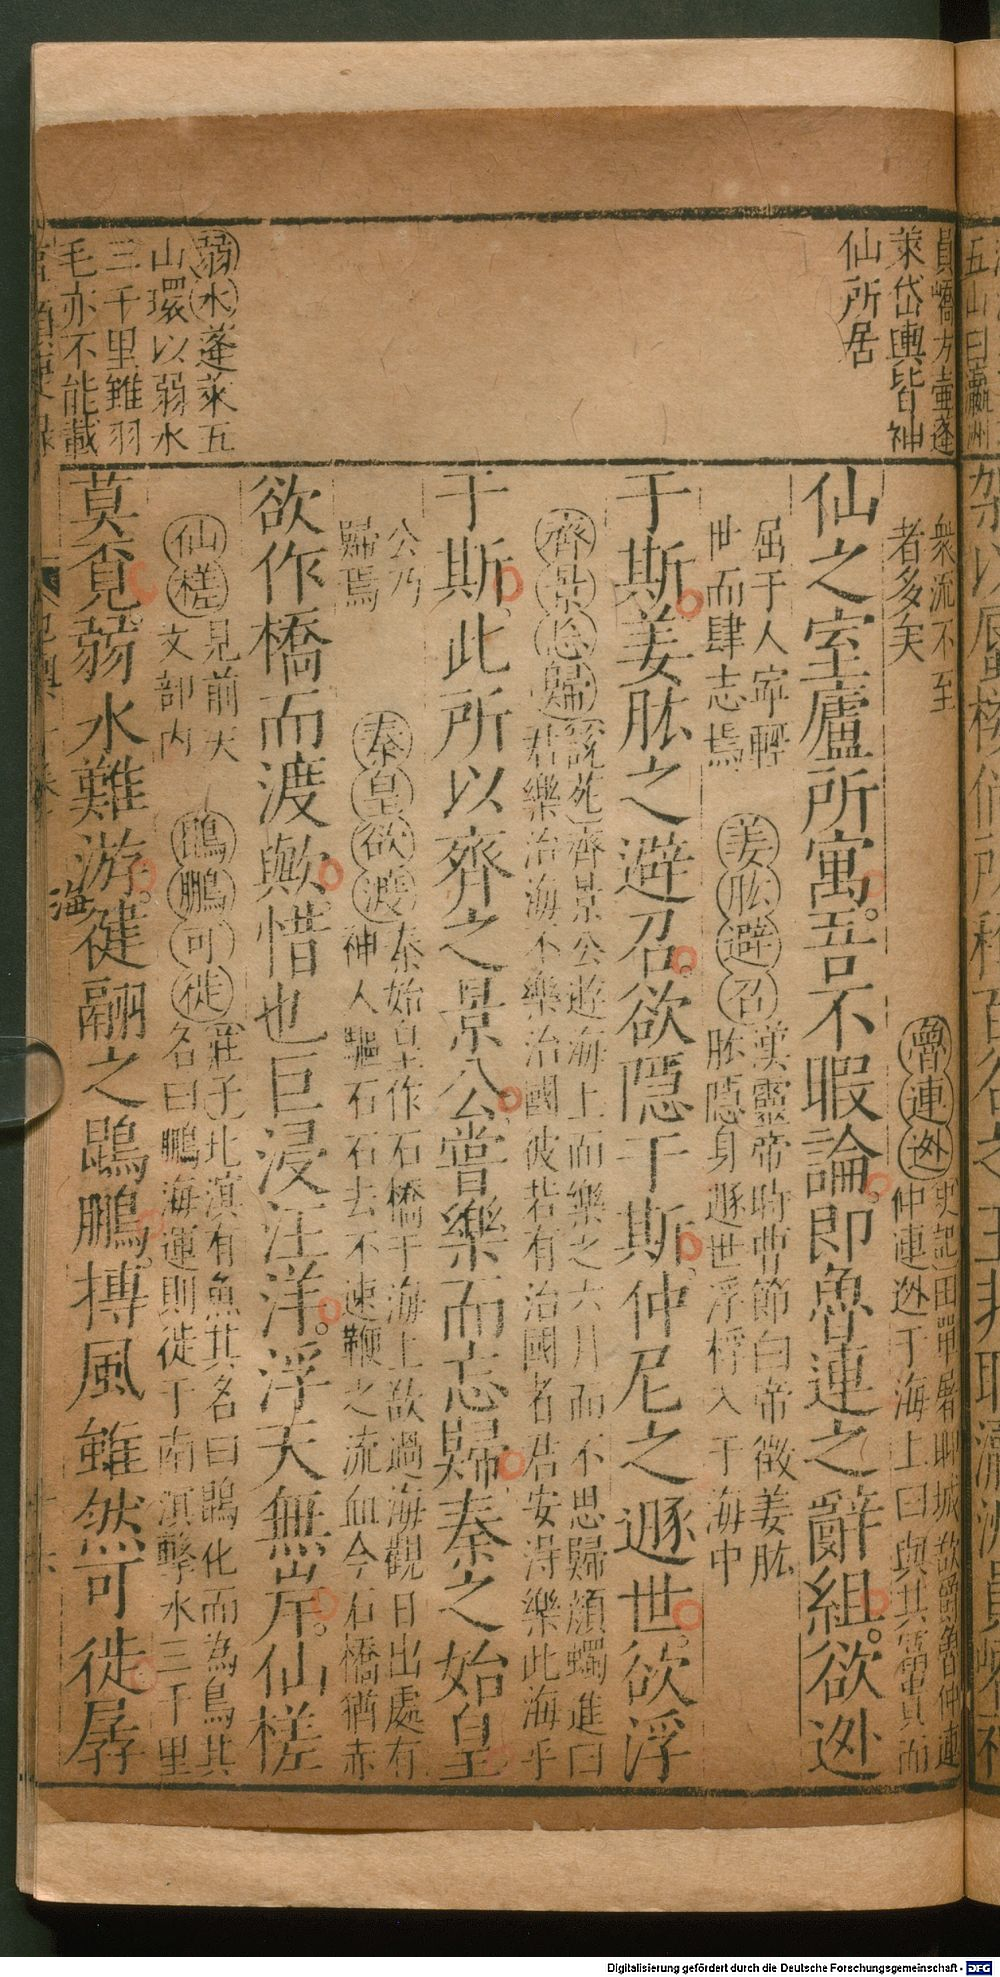 員嶠方壷蓬
萊岱輿皆神
仙所居
弱水蓬萊五
山環以弱水
三千里雖羽
毛亦不能載
衆流不至
者多矣
魯連逊
史記田單屠聊城欲爵魯仲連
仲連逊于海上曰與其富貴而
仙之室廬所寓。吾不暇論。即魯連之辭組。欲逊
屈于人寧輕
世而肆志焉
姜肱避召
漢靈帝時曹節白帝徵姜肱
肱隱身遯世浮桴入于海中
于斯。姜肱之避召。欲隱于斯。仲尼之遯世。欲浮
齊景忘歸
說苑齊景公遊海上而樂之六月而不思歸顔蠋進曰
君樂治海不樂治國彼若有治國者君安得樂此海乎
于斯。此所以齊之景公。嘗樂而忘歸。秦之始皇
公乃
歸焉
秦皇欲渡
秦始皇作石橋于海上欲過海觀日出處有
神人驅石石去不速鞭之流血今石橋猶赤
欲作橋而渡歟。惜也巨浸汪洋。浮天無岸。仙槎
仙槎
見前天
文部内
鵾鵬可徙
莊子北溟有魚其名曰鵾化而為鳥其
名曰鵬海運則徙于南溟擊水三千里
莫覔。弱水難游。健翮之鵾鵬。搏風雖然可徙孱
海
五山曰瀛洲
Digitalisierung gefördert durch die Deutsche Forschungsgemeinschaft - DFG